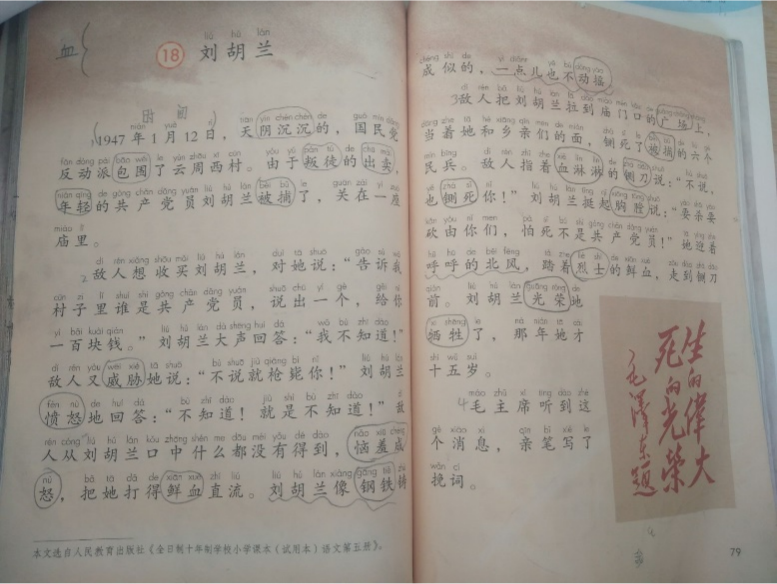 血
18 刘胡兰
时间
1947年1月12日，天阴沉沉的，国民党
反动派包围了云周西村。由于叛徒的出卖，
年轻的共产党员刘胡兰被捕了，关在一座
庙里。
2敌人想收买刘胡兰，对她说：“告诉我
村子里谁是共产党员，说出一个，给你
一百块钱。”刘胡兰大声回答：“我不知道！”
敌人又威胁她说：“不说就枪毙你！”刘胡兰
愤怒地回答：“不知道！就是不知道！”敌
人从刘胡兰口中什么都没有得到，恼羞成
怒，把她打得鲜血直流。刘胡兰像钢铁铸
本文选自人民教育出版社《全日制十年制学校小学课本（试用本）语文第五册》。
成似的，一点儿也不动摇
3敌人把刘胡兰拉到庙门口的广场上，
当着她和乡亲们的面，铡死了被捕的六个
民兵。敌人指着血淋淋的铡刀说：“不说，
也铡死你！”刘胡兰挺起胸膛说：“要杀要
砍由你们，怕死不是共产党员！”她迎着
呼呼的北风，踏着烈士的鲜血，走到铡刀
前。刘胡兰光荣地
牺牲了，那年她才
十五岁。
4毛主席听到这
个消息，亲笔写了
挽词。
生的偉大
死的光榮
毛澤东題
79